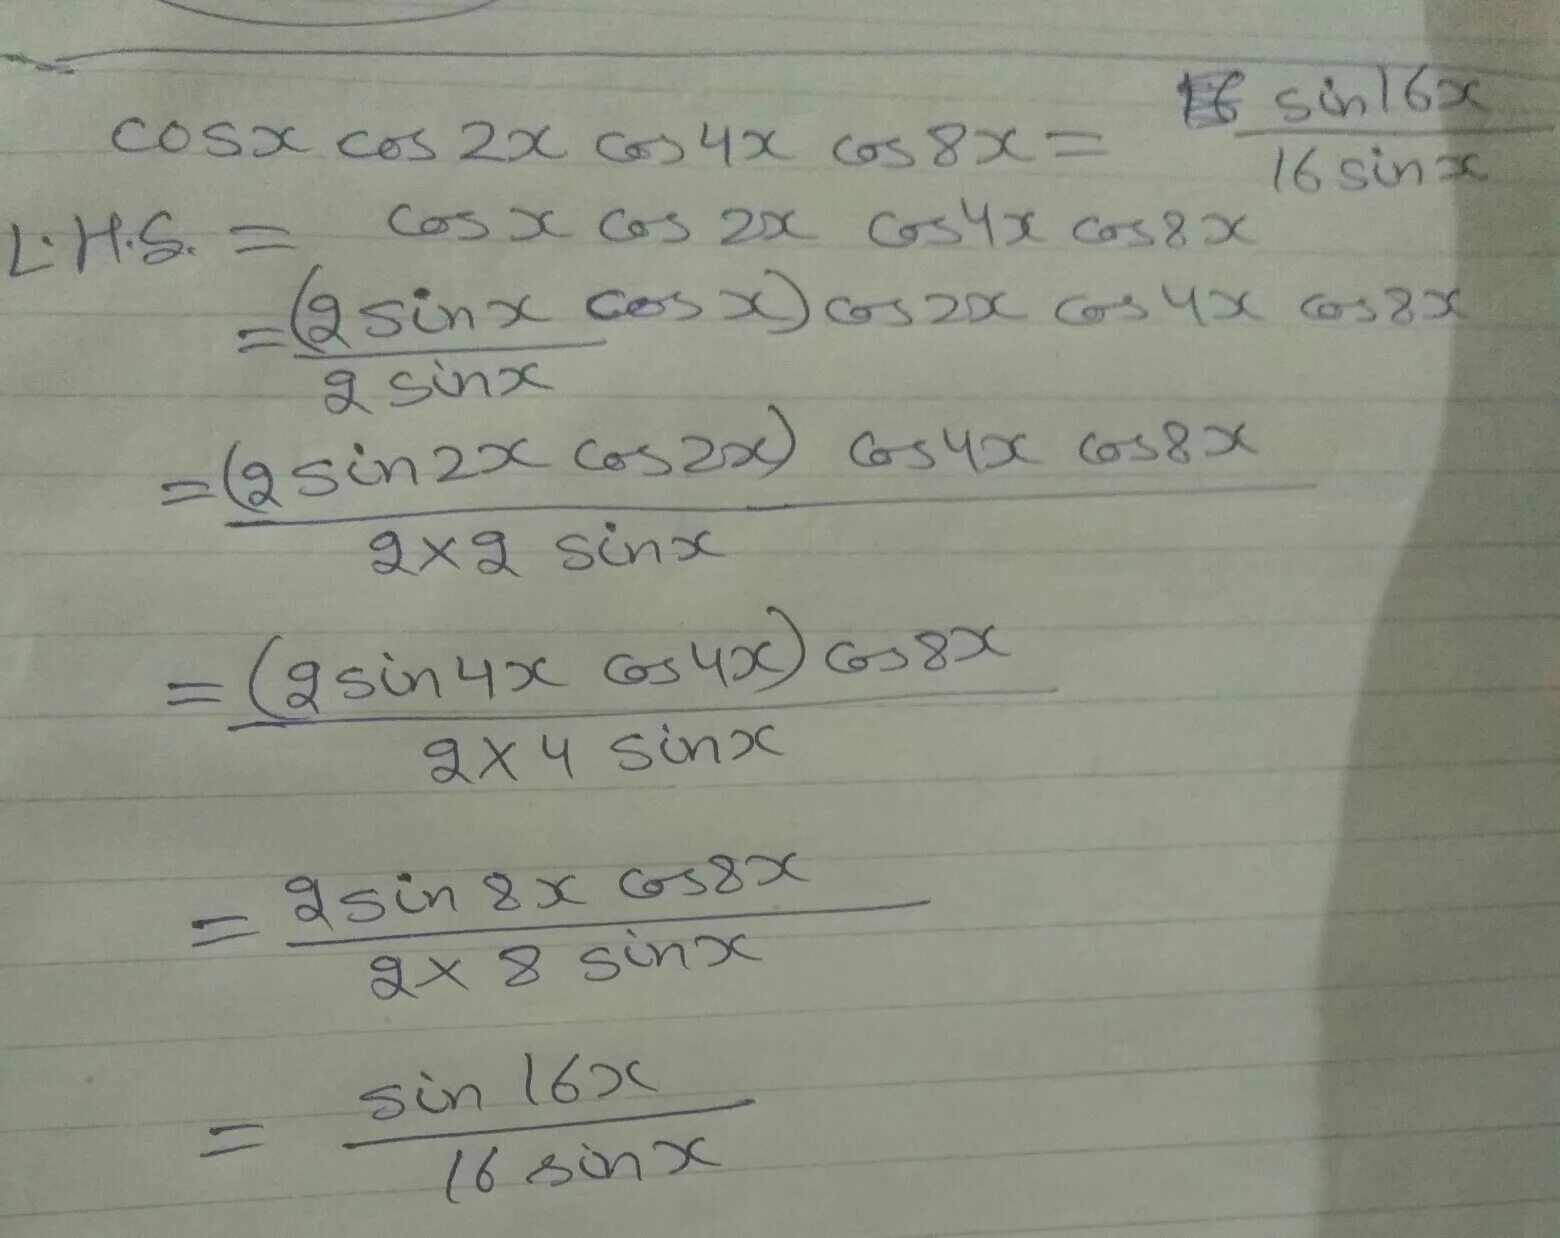 cosx cos2x cos4x cos8x = sin16x / 16 sinx
L.H.S. = cosx cos2x cos4x cos8x
= (2 sinx cosx) cos2x cos4x cos8x
2 sinx
= (2 sin2x cos2x) cos4x cos8x
2×2 sinx
= (2 sin4x cos4x) cos8x
2×4 sinx
= 2 sin8x cos8x
2×8 sinx
= sin16x
16 sinx